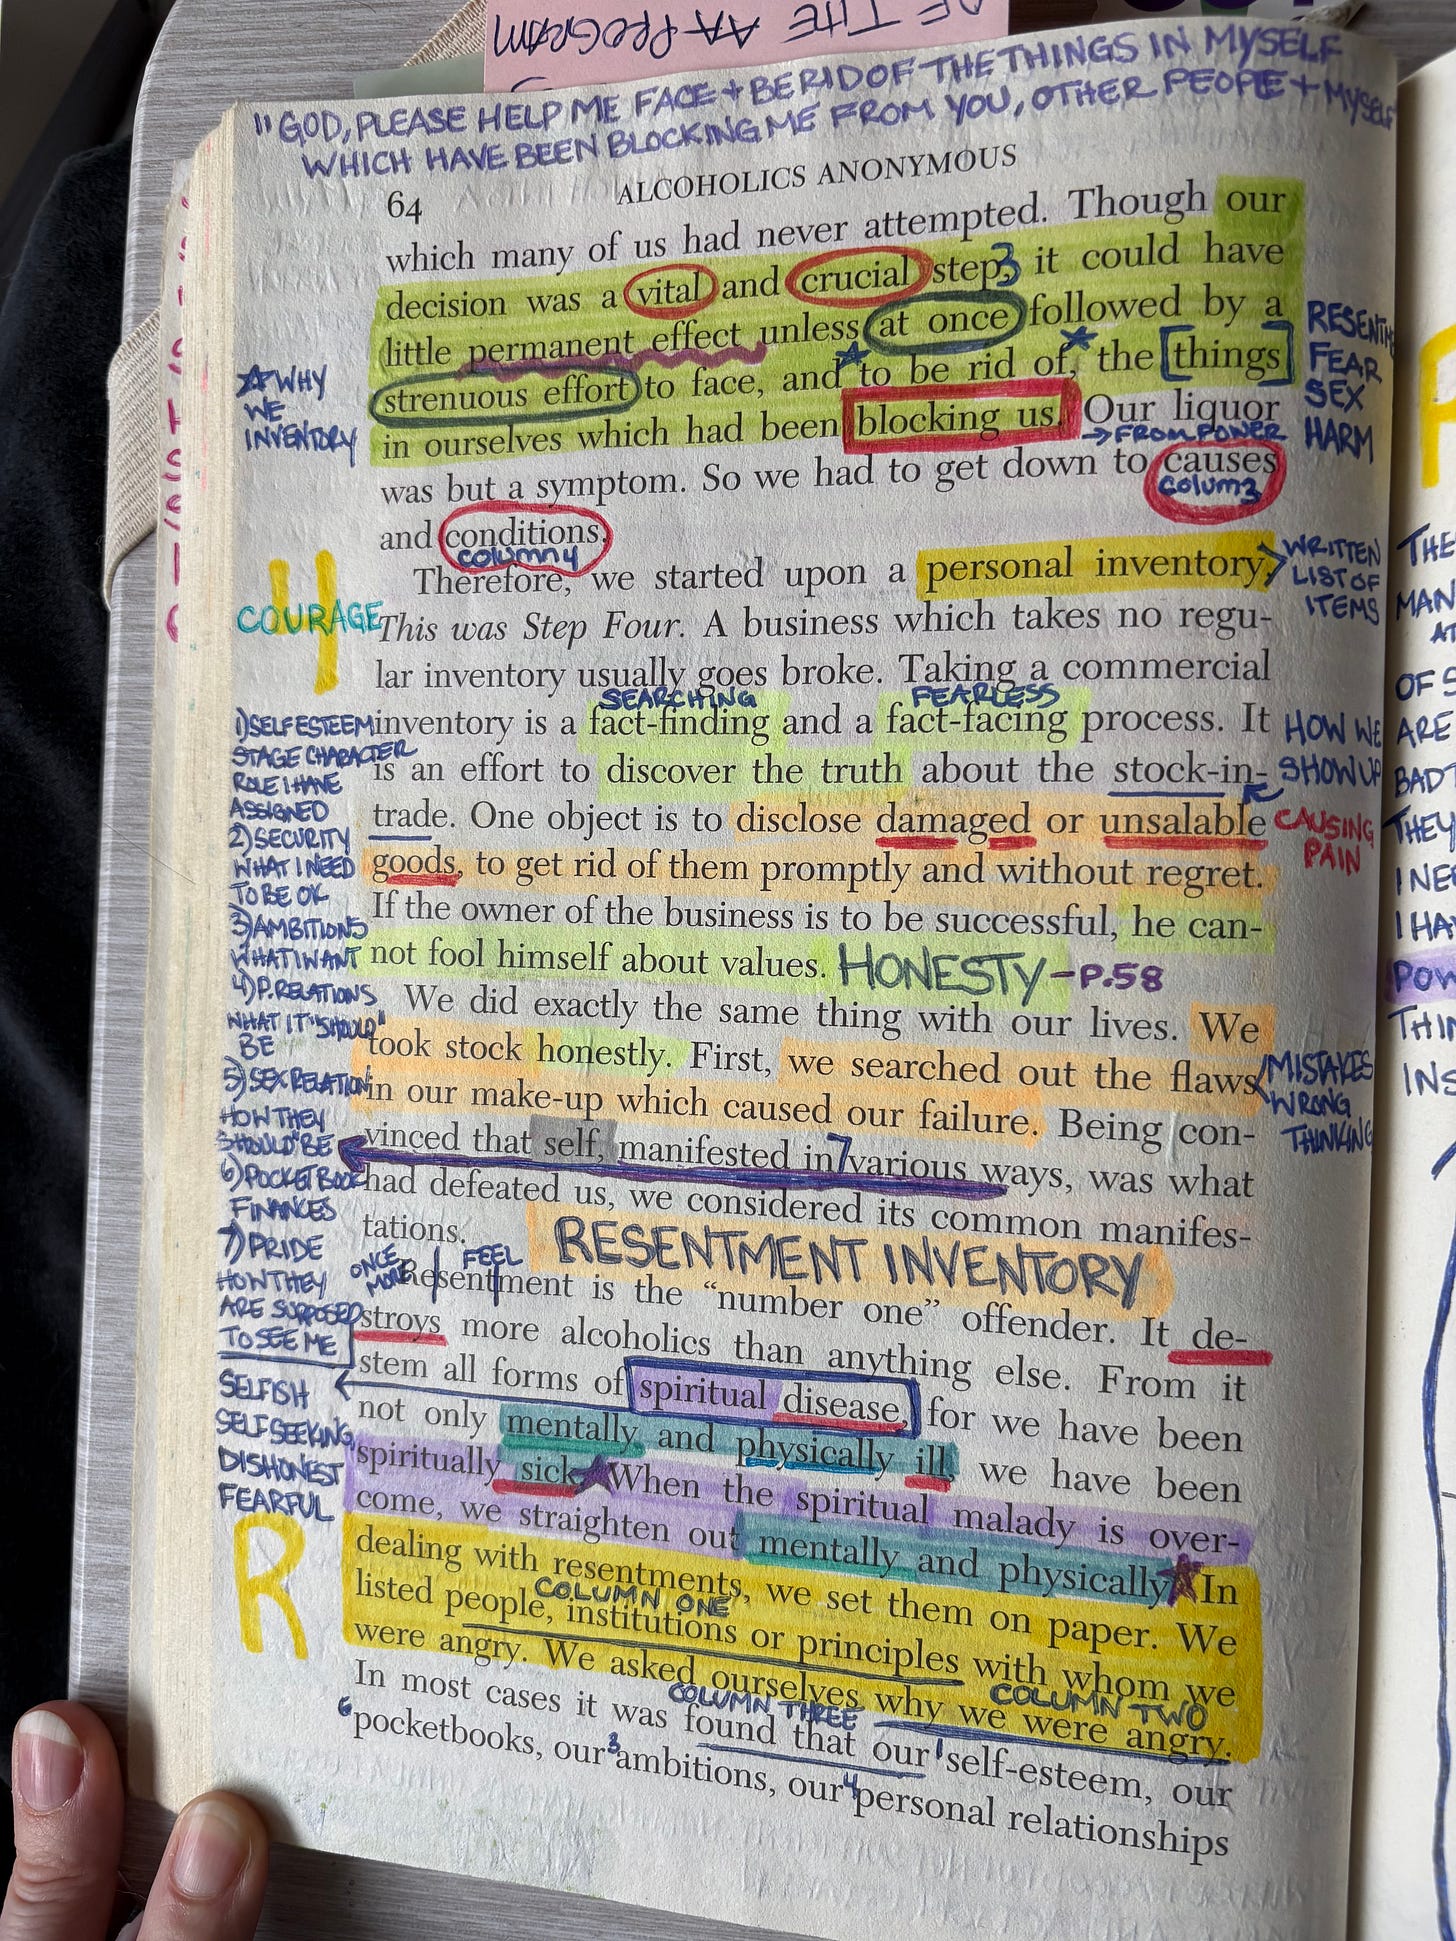 OF THE AA PROGRAM
"GOD, PLEASE HELP ME FACE + BE RID OF THE THINGS IN MYSELF
WHICH HAVE BEEN BLOCKING ME FROM YOU, OTHER PEOPLE + MYSELF
64 ALCOHOLICS ANONYMOUS
which many of us had never attempted. Though our
decision was a vital and crucial step, 3 it could have
little permanent effect unless at once followed by a
strenuous effort to face, and to be rid of, the [things]
in ourselves which had been blocking us. Our liquor
→ FROM POWER
was but a symptom. So we had to get down to causes
COLUM 3
and conditions.
COLUMN 4
Therefore, we started upon a personal inventory.
This was Step Four. A business which takes no regu-
lar inventory usually goes broke. Taking a commercial
SEARCHING FEARLESS
inventory is a fact-finding and a fact-facing process. It
is an effort to discover the truth about the stock-in-
trade. One object is to disclose damaged or unsalable
goods, to get rid of them promptly and without regret.
If the owner of the business is to be successful, he can-
not fool himself about values. HONESTY - P.58
We did exactly the same thing with our lives. We
took stock honestly. First, we searched out the flaws
in our make-up which caused our failure. Being con-
vinced that self, manifested in 7 various ways, was what
had defeated us, we considered its common manifes-
tations. RESENTMENT INVENTORY
ONCE MORE FEEL
Resentment is the "number one" offender. It de-
stroys more alcoholics than anything else. From it
stem all forms of spiritual disease, for we have been
not only mentally and physically ill, we have been
spiritually sick. When the spiritual malady is over-
come, we straighten out mentally and physically. In
dealing with resentments, we set them on paper. We
COLUMN ONE
listed people, institutions or principles with whom we
COLUMN TWO
were angry. We asked ourselves why we were angry.
COLUMN THREE
In most cases it was found that our 1 self-esteem, our
6 pocketbooks, our 3 ambitions, our 4 personal relationships
WHY
WE
INVENTORY
4
COURAGE
1) SELFESTEEM
STAGE CHARACTER
ROLE I HAVE
ASSIGNED
2) SECURITY
WHAT I NEED
TO BE OK
3) AMBITIONS
WHAT I WANT
4) P. RELATIONS
WHAT IT "SHOULD"
BE
5) SEX RELATION
HOW THEY
SHOULD BE
6) POCKETBOOK
FINANCES
7) PRIDE
HOW THEY
ARE SUPPOSED
TO SEE ME
SELFISH
SELFSEEKING
DISHONEST
FEARFUL
R
RESENTM
FEAR
SEX
HARM
WRITTEN
LIST OF
ITEMS
HOW WE
SHOW UP
CAUSING
PAIN
MISTAKES
WRONG
THINKING
THE
MAN
AT
OF S
ARE
BADT
THEY
I NE
I HA
POW
THIN
INS